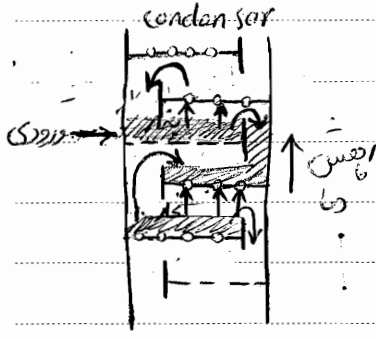 condensar
ورودی
کاهش
دما